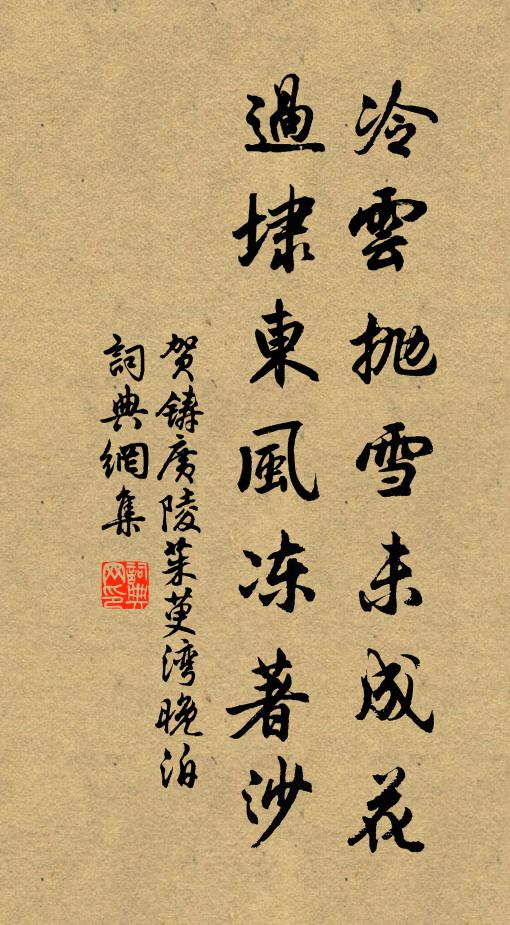 冷雲抛雪未成花
過埭東風冻著沙
贺鑄廣陵茱萸湾晚泊
詞典網集
詞典网印